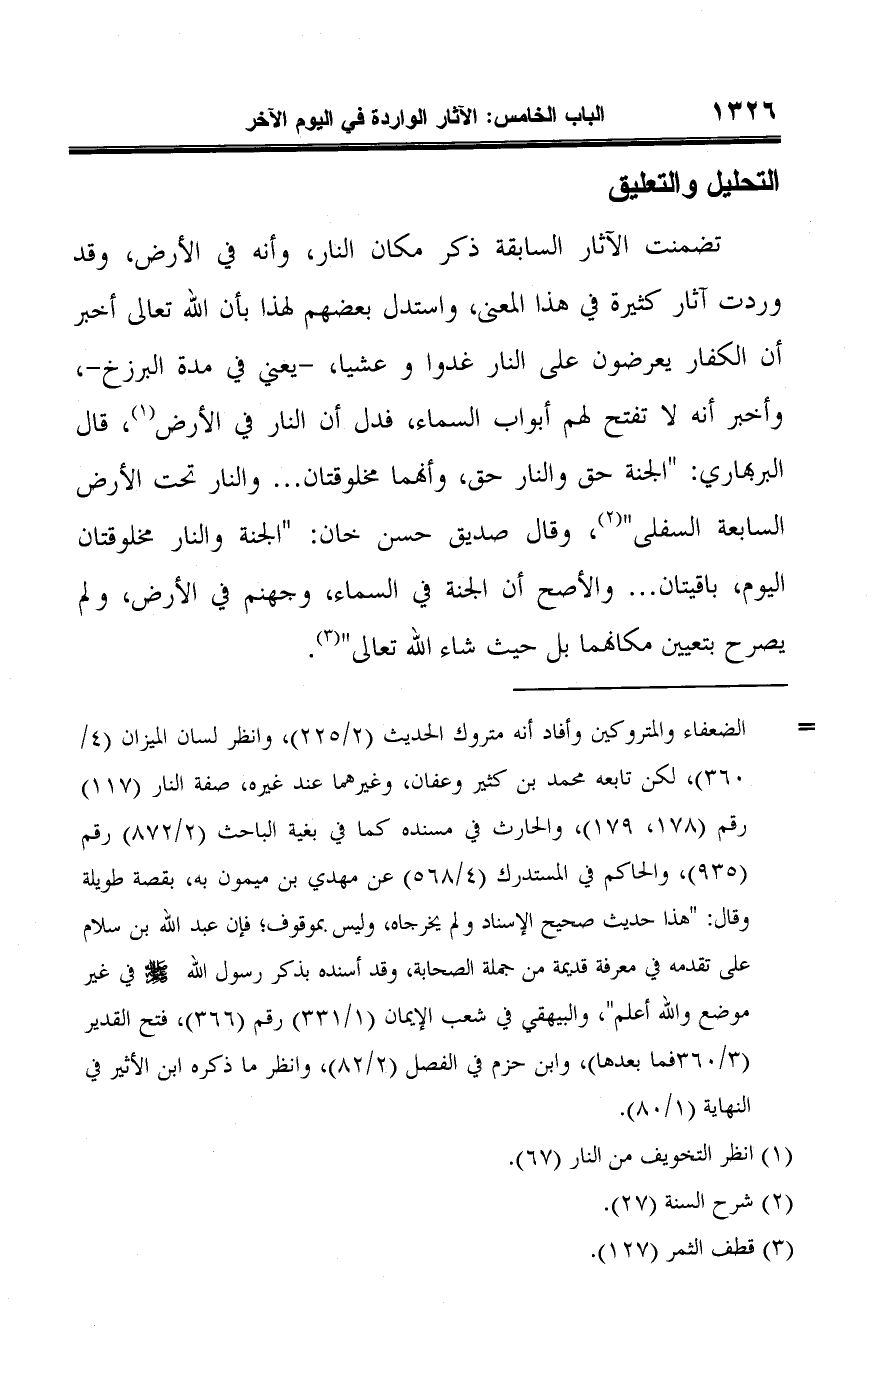 ١٣٢٦ الباب الخامس: الآثار الواردة في اليوم الآخر
التحليل والتعليق
تضمنت الآثار السابقة ذكر مكان النار، وأنه في الأرض، وقد
وردت آثار كثيرة في هذا المعنى، واستدل بعضهم لهذا بأن الله تعالى أخبر
أن الكفار يعرضون على النار غدوا و عشيا، –يعني في مدة البرزخ–،
وأخبر أنه لا تفتح لهم أبواب السماء، فدل أن النار في الأرض(١)، قال
البربهاري: "الجنة حق والنار حق، وأنهما مخلوقتان... والنار تحت الأرض
السابعة السفلى"(٢)، وقال صديق حسن خان: "الجنة والنار مخلوقتان
اليوم، باقيتان... والأصح أن الجنة في السماء، وجهنم في الأرض، ولم
يصرح بتعيين مكانهما بل حيث شاء الله تعالى"(٣).
= الضعفاء والمتروكين وأفاد أنه متروك الحديث (٢٢٥/٢)، وانظر لسان الميزان (٤/
٣٦٠)، لكن تابعه محمد بن كثير وعفان، وغيرهما عند غيره، صفة النار (١١٧)
رقم (١٧٨، ١٧٩)، والحارث في مسنده كما في بغية الباحث (٨٧٢/٢) رقم
(٩٣٥)، والحاكم في المستدرك (٥٦٨/٤) عن مهدي بن ميمون به، بقصة طويلة
وقال: "هذا حديث صحيح الإسناد ولم يخرجاه، وليس بموقوف؛ فإن عبد الله بن سلام
على تقدمه في معرفة قديمة من جملة الصحابة، وقد أسنده بذكر رسول الله ﷺ في غير
موضع والله أعلم"، والبيهقي في شعب الإيمان (٣٣١/١) رقم (٣٦٦)، فتح القدير
(٣٦٠/٣فما بعدها)، وابن حزم في الفصل (٨٢/٢)، وانظر ما ذكره ابن الأثير في
النهاية (٨٠/١).
(١) انظر التخويف من النار (٦٧).
(٢) شرح السنة (٢٧).
(٣) قطف الثمر (١٢٧).